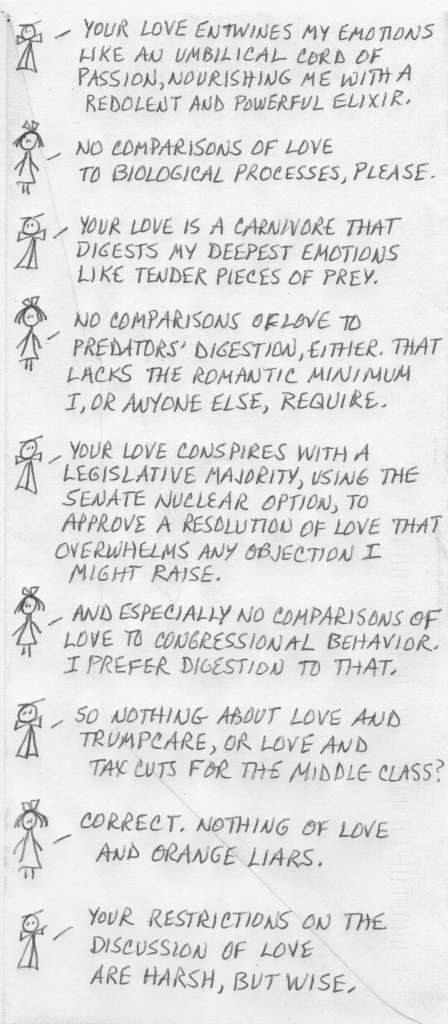 YOUR LOVE ENTWINES MY EMOTIONS
LIKE AN UMBILICAL CORD OF
PASSION, NOURISHING ME WITH A
REDOLENT AND POWERFUL ELIXIR.
NO COMPARISONS OF LOVE
TO BIOLOGICAL PROCESSES, PLEASE.
YOUR LOVE IS A CARNIVORE THAT
DIGESTS MY DEEPEST EMOTIONS
LIKE TENDER PIECES OF PREY.
NO COMPARISONS OF LOVE TO
PREDATORS' DIGESTION, EITHER. THAT
LACKS THE ROMANTIC MINIMUM
I, OR ANYONE ELSE, REQUIRE.
YOUR LOVE CONSPIRES WITH A
LEGISLATIVE MAJORITY, USING THE
SENATE NUCLEAR OPTION, TO
APPROVE A RESOLUTION OF LOVE THAT
OVERWHELMS ANY OBJECTION I
MIGHT RAISE.
AND ESPECIALLY NO COMPARISONS OF
LOVE TO CONGRESSIONAL BEHAVIOR.
I PREFER DIGESTION TO THAT.
SO NOTHING ABOUT LOVE AND
TRUMPCARE, OR LOVE AND
TAX CUTS FOR THE MIDDLE CLASS?
CORRECT. NOTHING OF LOVE
AND ORANGE LIARS.
YOUR RESTRICTIONS ON THE
DISCUSSION OF LOVE
ARE HARSH, BUT WISE.